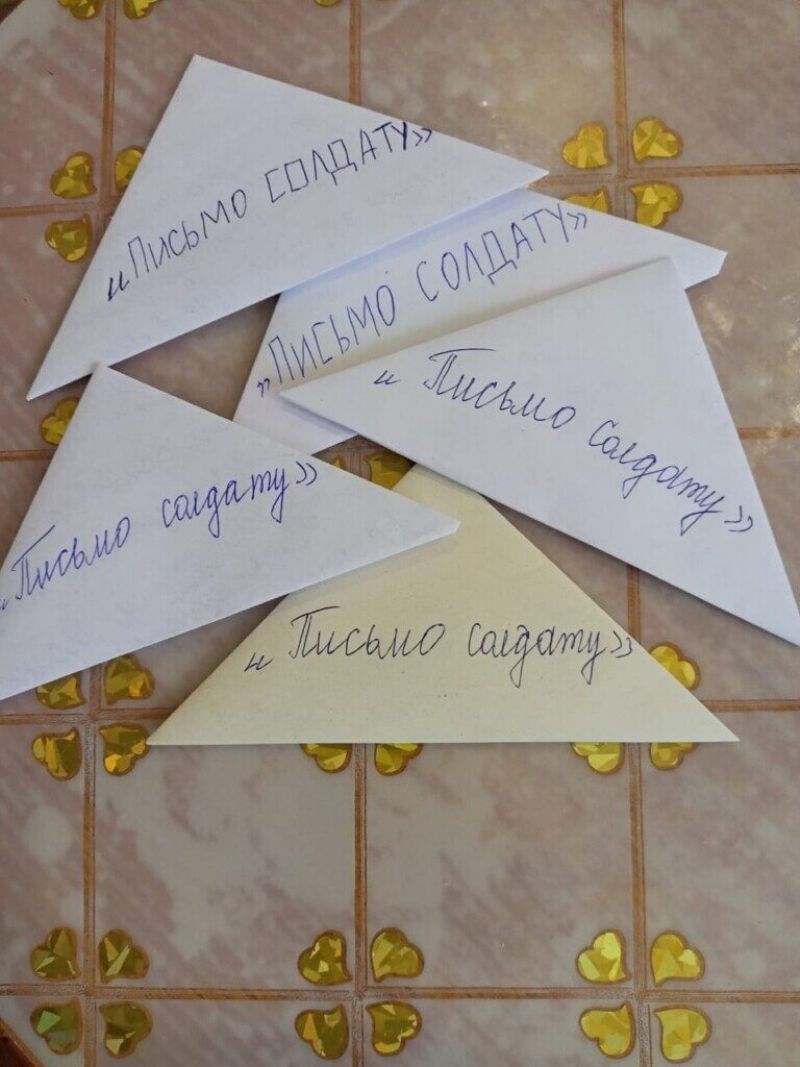 «Письмо СОЛДАТУ»
„ПИСЬМО СОЛДАТУ»
« Письмо солдату»
„Письмо солдату»
« Письмо солдату»